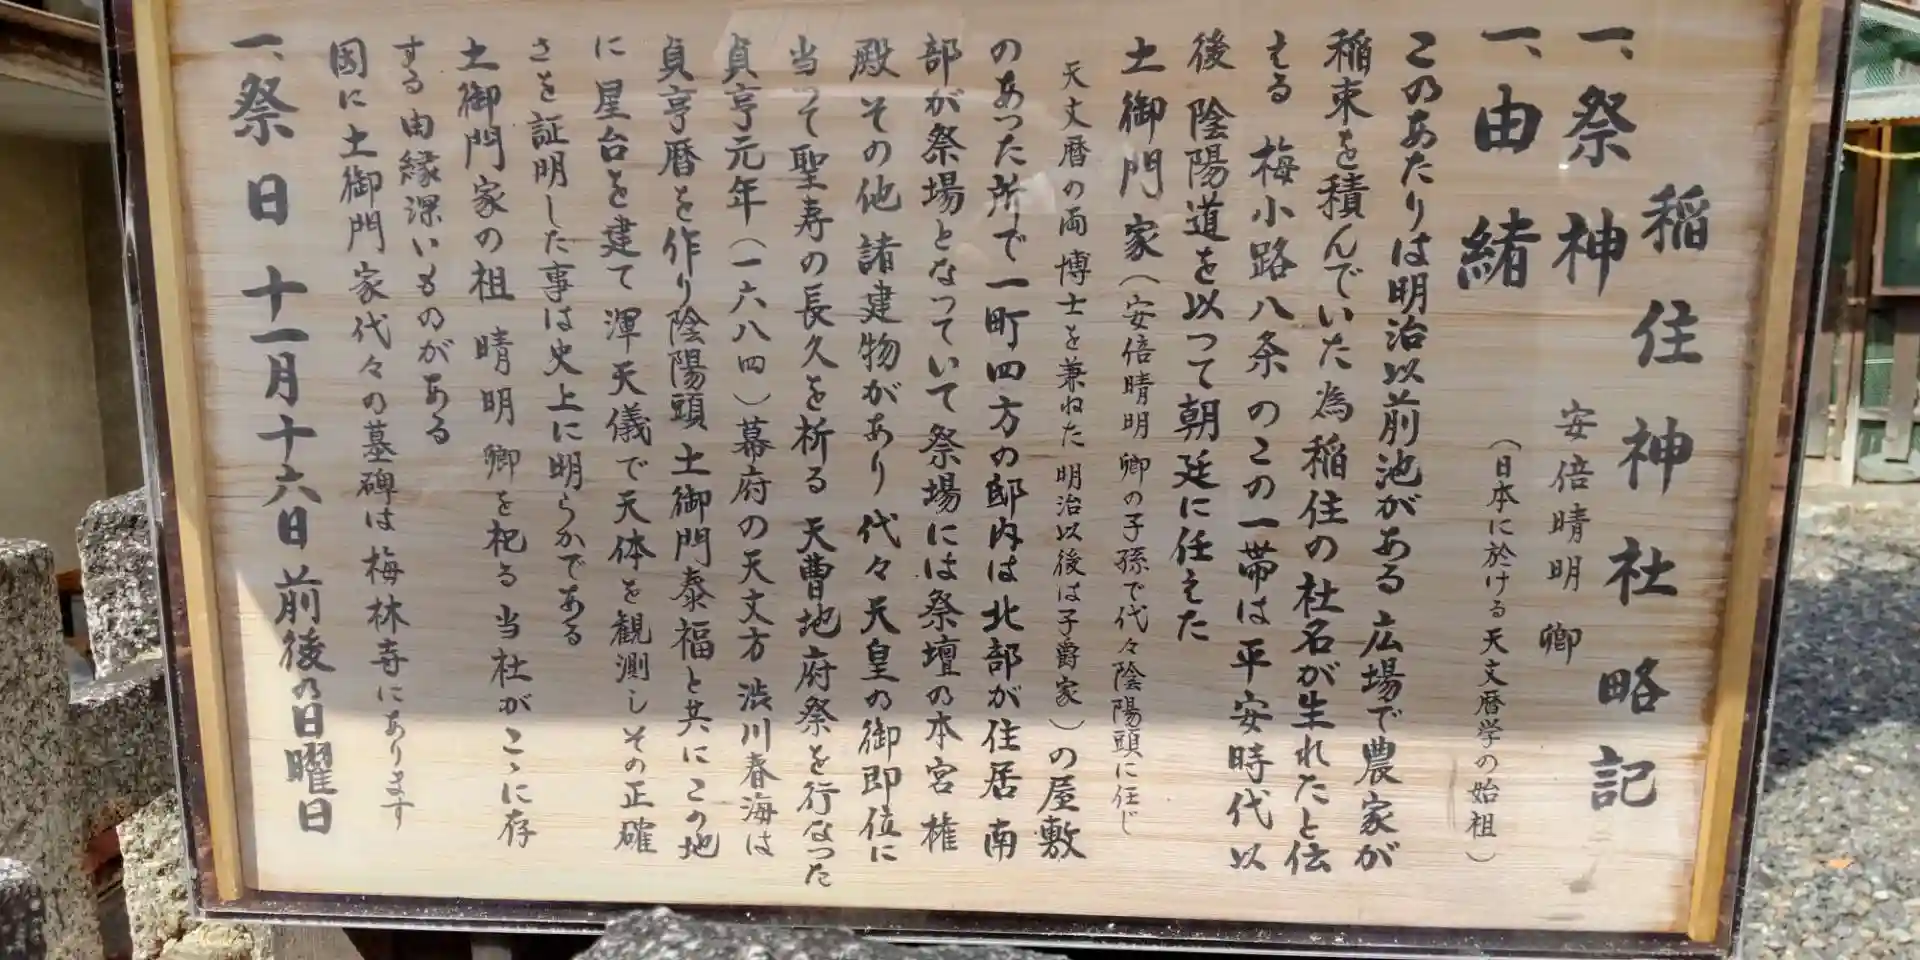 稲住神社略記
一、祭神 安倍晴明 卿
(日本に於ける天文暦学の始祖)
一、由緒
このあたりは明治以前池がある 広場で農家が
稲束を積んでいた為 稲住の社名が生れたと伝
える 梅小路八条のこの一帯は平安時代以
後 陰陽道を以つて朝廷に任えた
土御門家(安倍晴明 卿の子孫で代々陰陽頭に任じ
天文暦の両博士を兼ねた 明治以後は子爵家)の屋敷
のあった所で一町四方の邸内は北部が住居 南
部が祭場となっていて祭場には祭壇の本宮 権
殿 その他 諸建物があり代々天皇の御即位に
当って聖寿の長久を祈る 天曹地府祭を行なった
貞享元年(一六八四)幕府の天文方 渋川春海は
貞享暦を作り陰陽頭 土御門泰福と共にこの地
に 星台を建て 渾天儀で天体を観測しその正確
さを証明した事は史上に明らかである
土御門家の祖 晴明 卿を祀る 当社がこゝに存
する由縁深いものがある
因に土御門家代々の墓碑は梅林寺にあります
一、祭日 十一月十六日 前後の日曜日